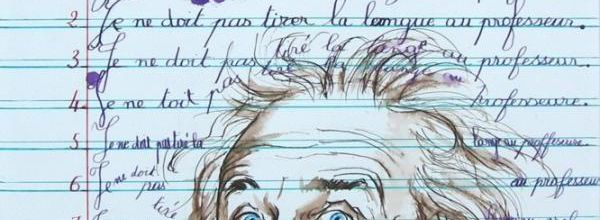 2. Je ne doit pas tirer la langue au professeur.
3. Je ne doit pas tiré la lange au professeur.
4. Je ne toit pas tiré la lange professeure.
5. Je ne doit pas tiré la lange au proffeseure.
6. Je ne doit pas tiré au professeur
7.